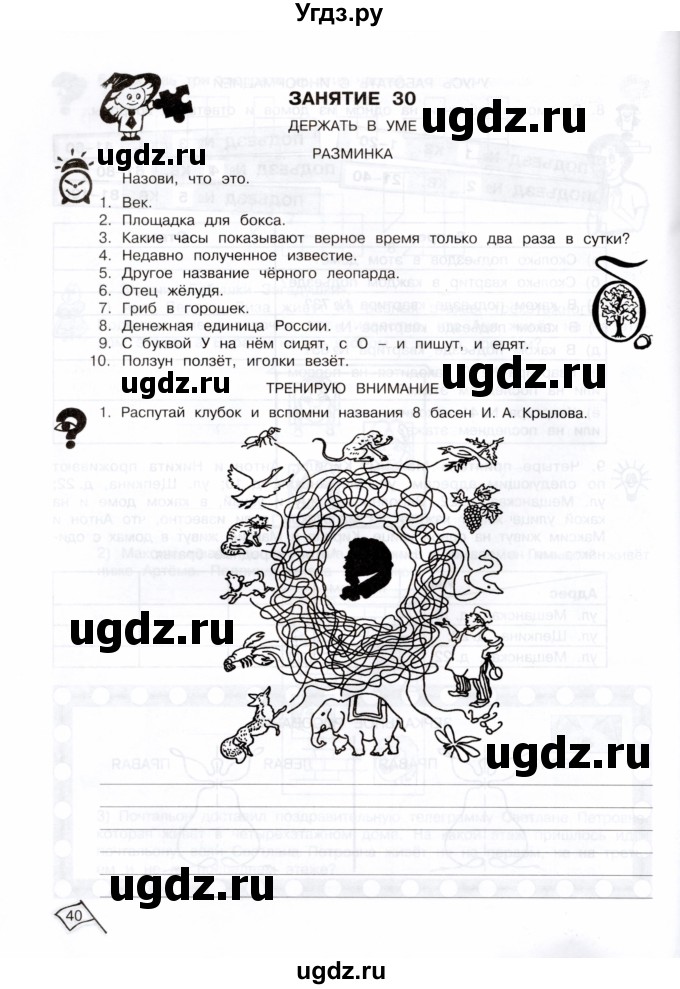 Угдз.ру
ЗАНЯТИЕ 30
ДЕРЖАТЬ В УМЕ
ugdz.ru
ugdz.ru
РАЗМИНКА
Назови, что это.
1. Век.
2. Площадка для бокса.
3. Какие часы показывают верное время только два раза в сутки?
4. Недавно полученное известие.
5. Другое название чёрного леопарда.
6. Отец жёлудя.
7. Гриб в горошек.
8. Денежная единица России.
9. С буквой У на нём сидят, с О – и пишут, и едят.
10. Ползун ползёт, иголки везёт.
ugdz.ru
ТРЕНИРУЮ ВНИМАНИЕ
1. Распутай клубок и вспомни названия 8 басен И. А. Крылова.
ugdz.ru
ugdz.ru
ugdz.ru
ugdz.ru
40
ugdz.ru